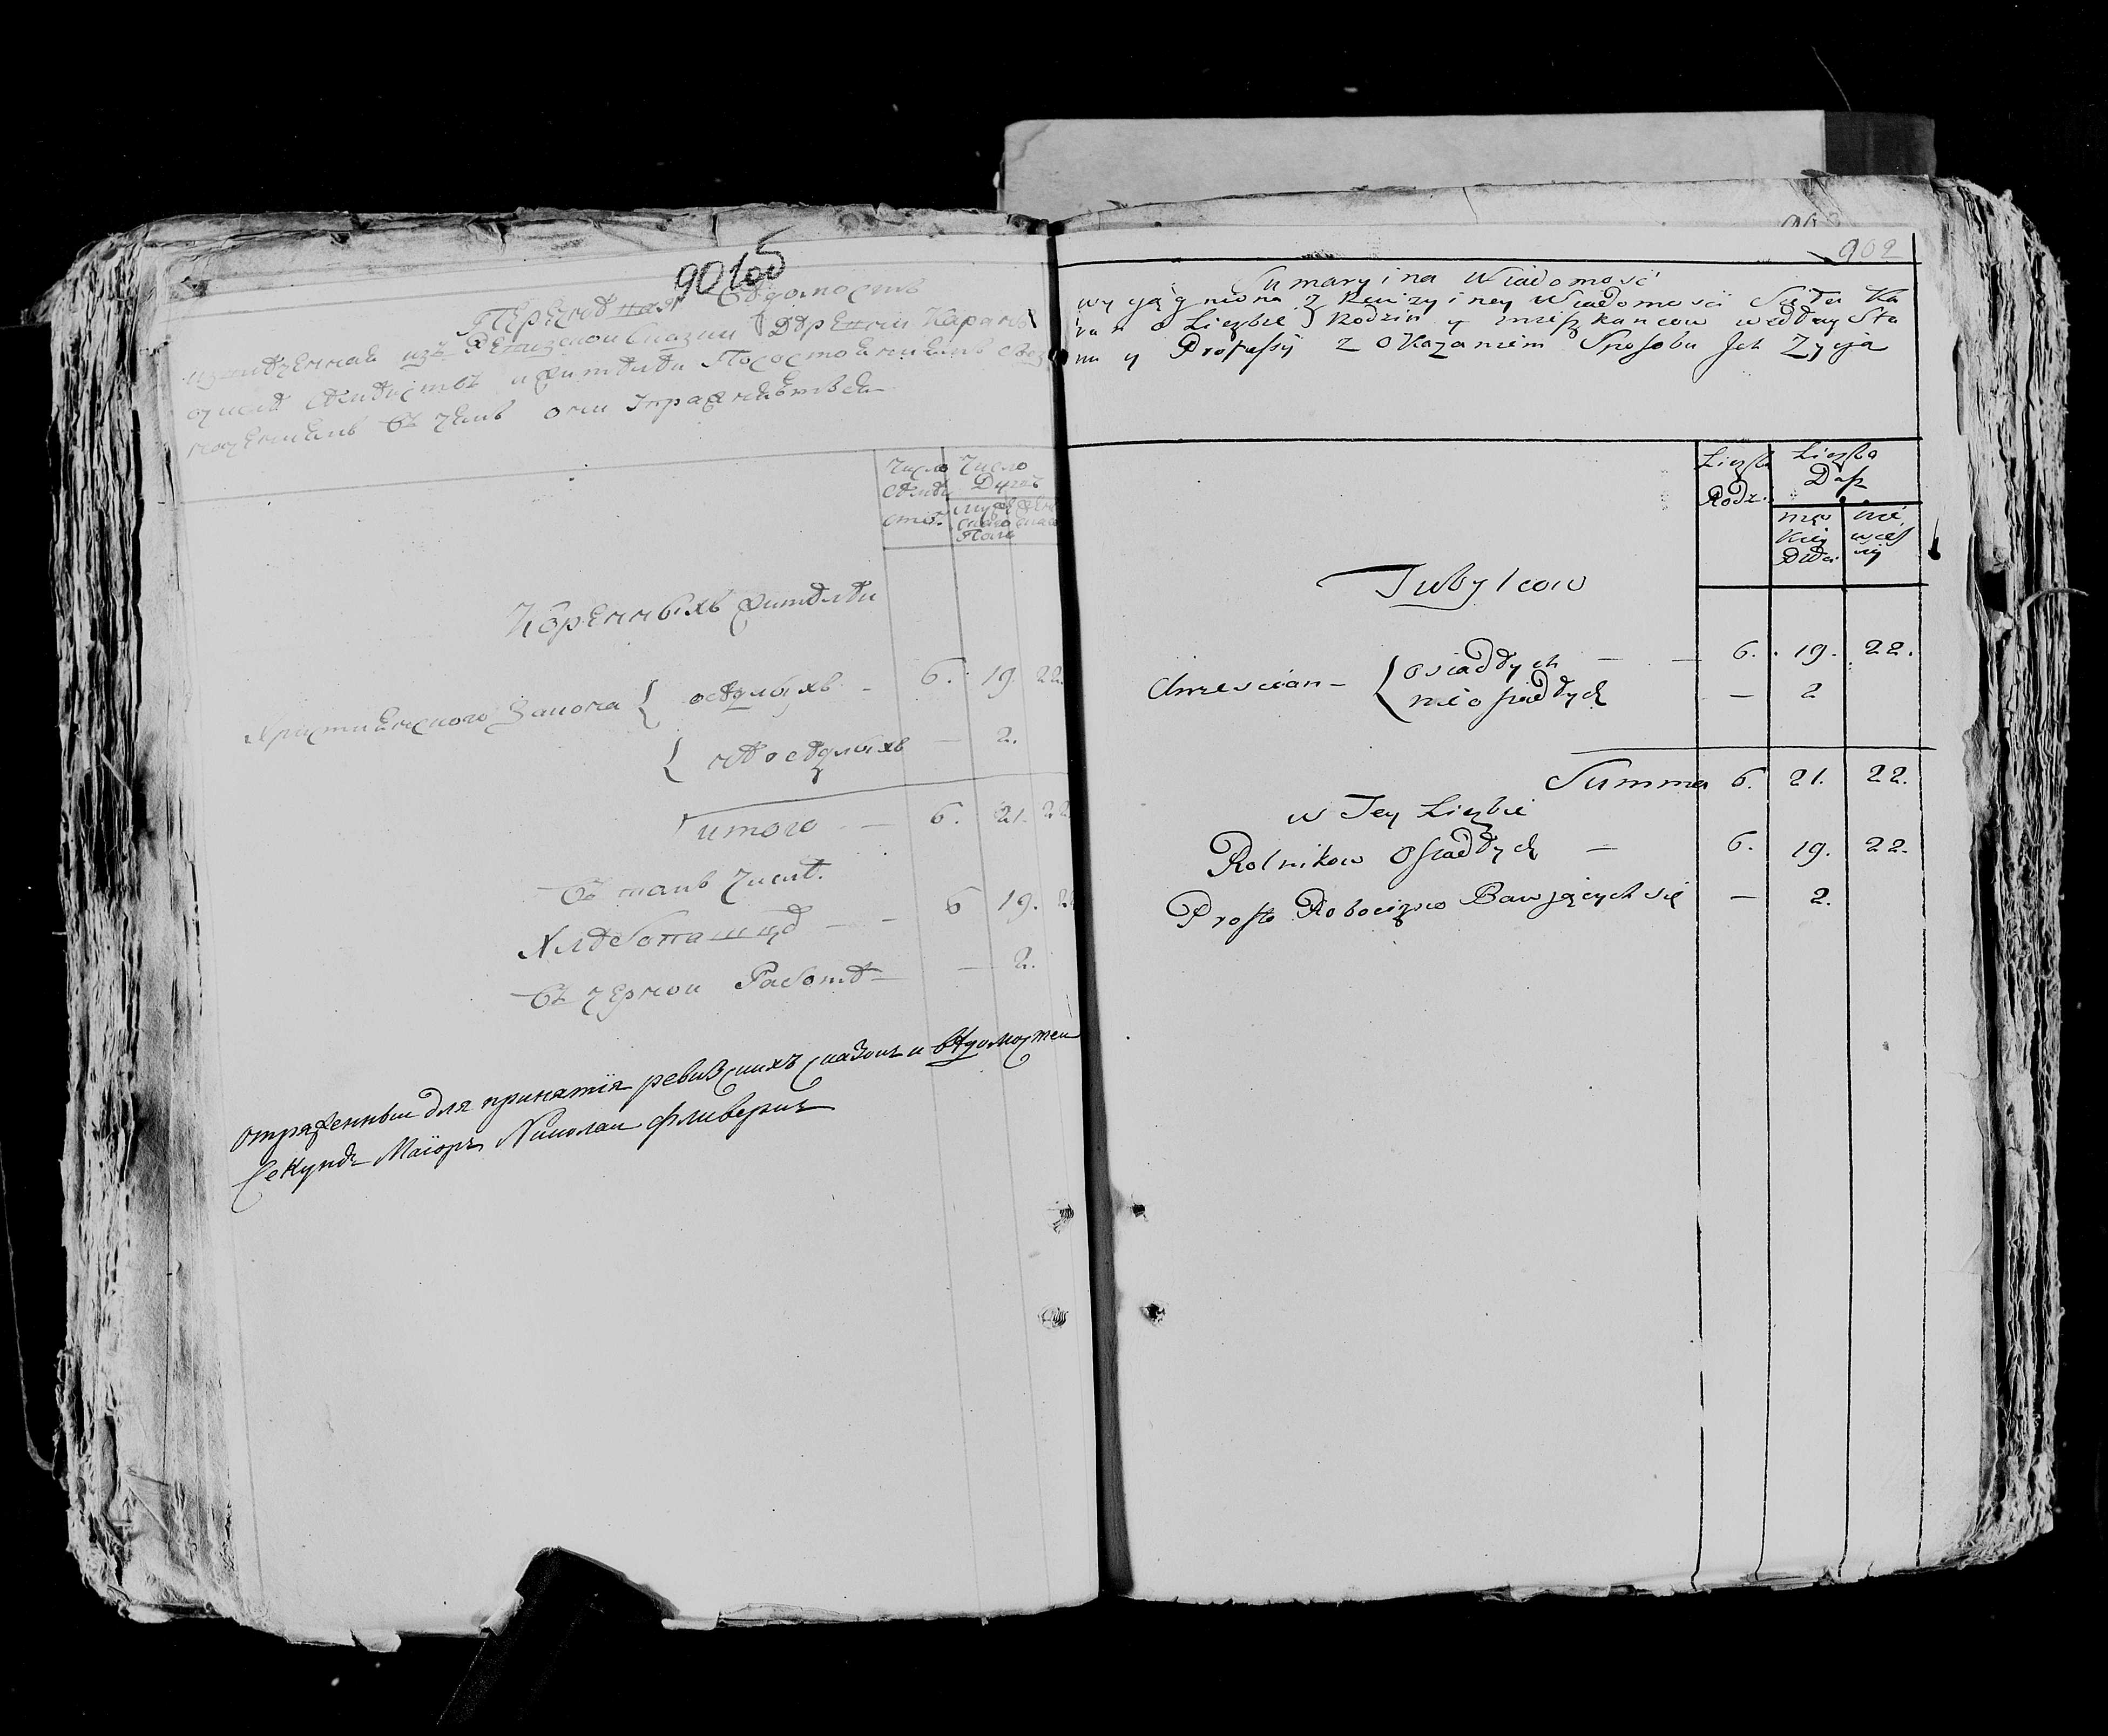 901об
Перечневая Ведомость
изъ Ревизской Сказки Деревни Каране
число семействъ и жители По состояниемъ
въ чемъ они упражняются
Число Семей ствъ
Число Душъ
мужеска женска
Пола
Коренныхъ жителей
Христианского Закона { оседлыхъ - 6. 19. 22.
{ неоседлыхъ — 2.
итого — 6. 21. 22
Въ томъ числе
Хлебопашце — — 6 19. 22
Въ черной Работе — — 2.
отряженныи для принятия ревизскихъ сказокъ и ведомостеи
Секундъ Маиоръ Николаи Фливеркъ
903
902
Sumaryina Wiadomość
wyciągniona z Rewizyiney Wiadomości Sioła Ka
ran o Liczbie Rodzin y mieszkancow według Sta
nu y Professij z okazaniem Sposobu Jch Zycia
Liczba Rodz.
Liczba Dusz
męs kiej Płci
nie wies ciej
Tubylcow
Chrzescian — { osiadłych — — 6. 19. 22.
nieosiadłych — 2
Summa 6. 21. 22.
w Tey Liczbie
Rolnikow Osiadłych — 6. 19. 22.
Prosto Robocizno Bawjących się — 2.